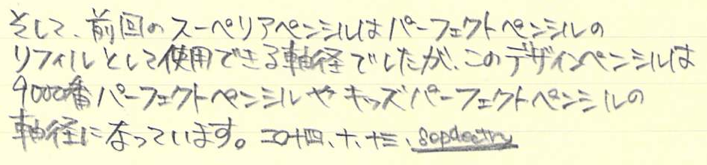 そして、前回のスーペリアペンシルはパーフェクトペンシルの
リフィルとして使用できる軸径でしたが、このデザインペンシルは
9000番パーフェクトペンシルやキッズパーフェクトペンシルの
軸径になっています。二〇十四、十、十三、